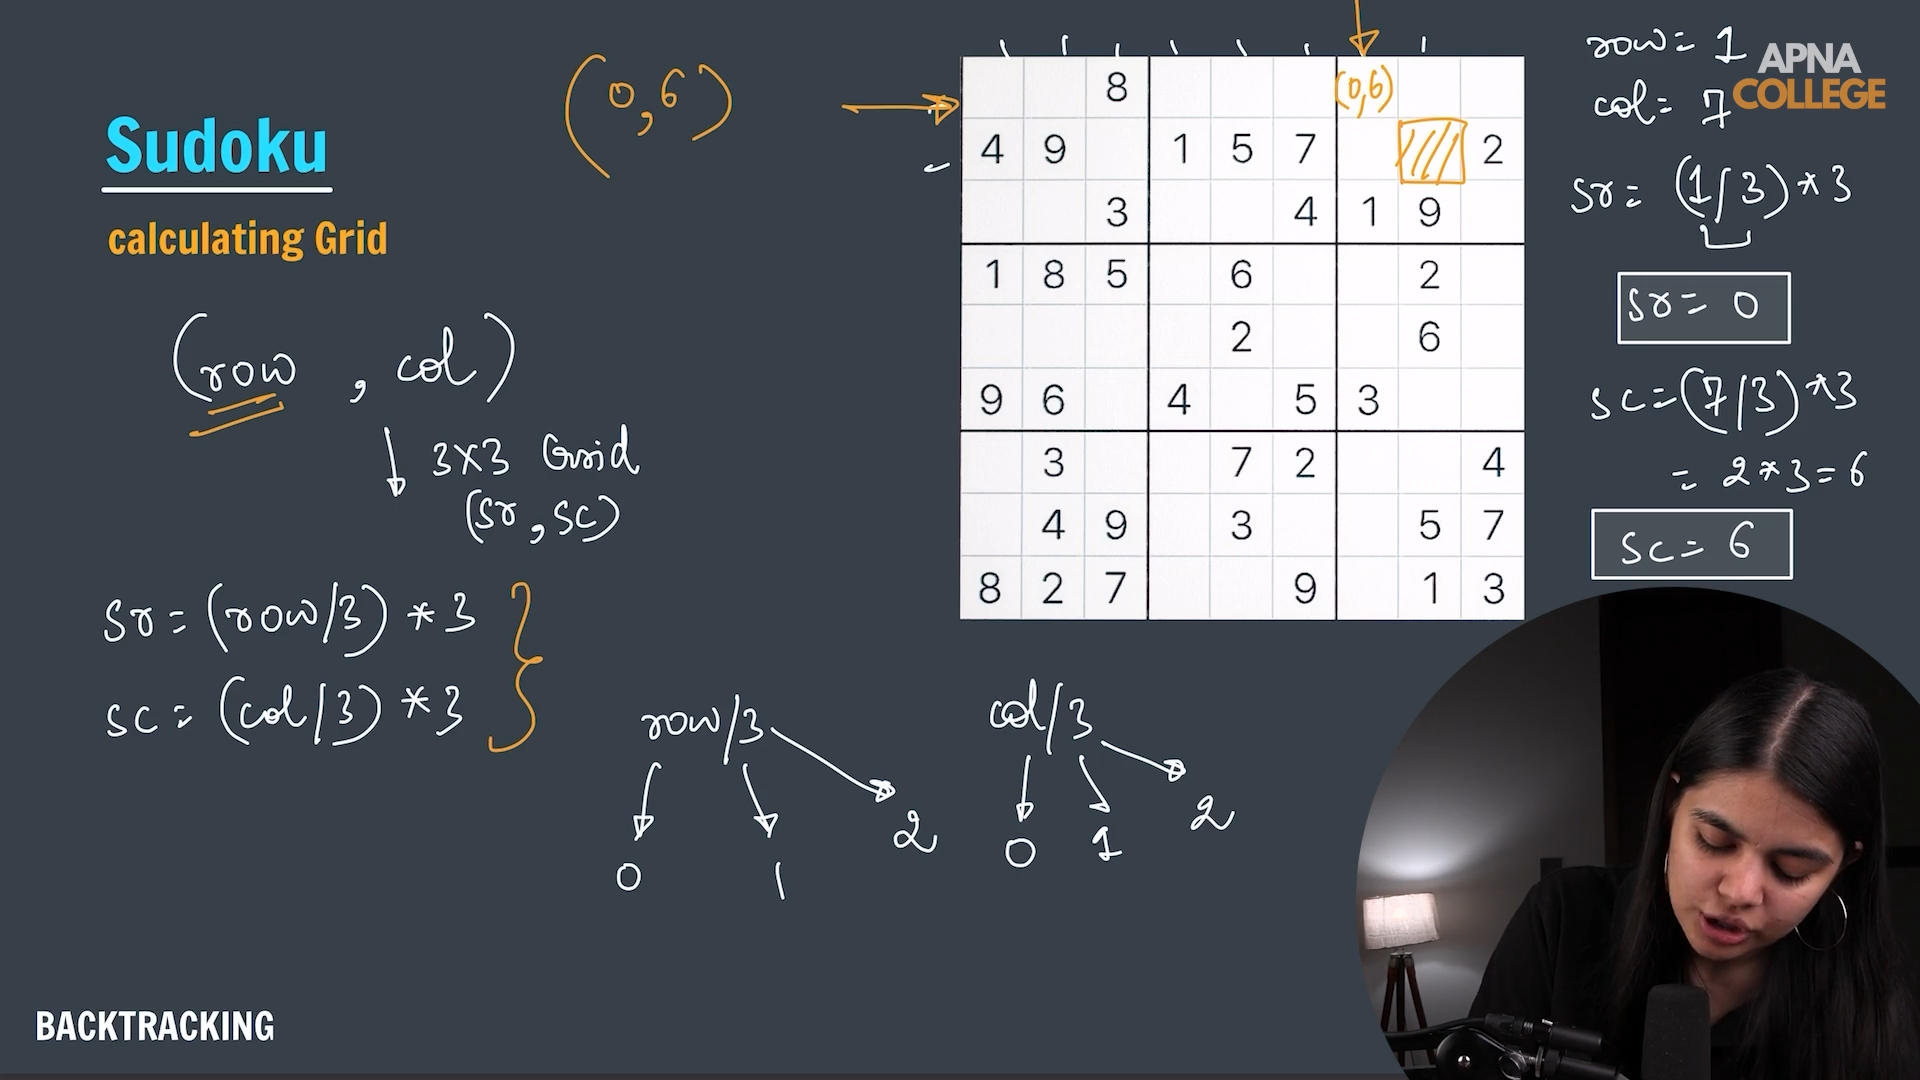 Sudoku
calculating Grid
(row, col)
3x3 Grid
(sr, sc)
sr = (row/3) * 3
sc = (col/3) * 3
(0,6)
8 (0,6)
4 9 1 5 7 2
3 4 1 9
1 8 5 6 2
2 6
9 6 4 5 3
3 7 2 4
4 9 3 5 7
8 2 7 9 1 3
row/3
0 1 2
col/3
0 1 2
row = 1
col = 7
APNA
COLLEGE
sr = (1/3) * 3
sr = 0
sc = (7/3) * 3
= 2 * 3 = 6
sc = 6
BACKTRACKING